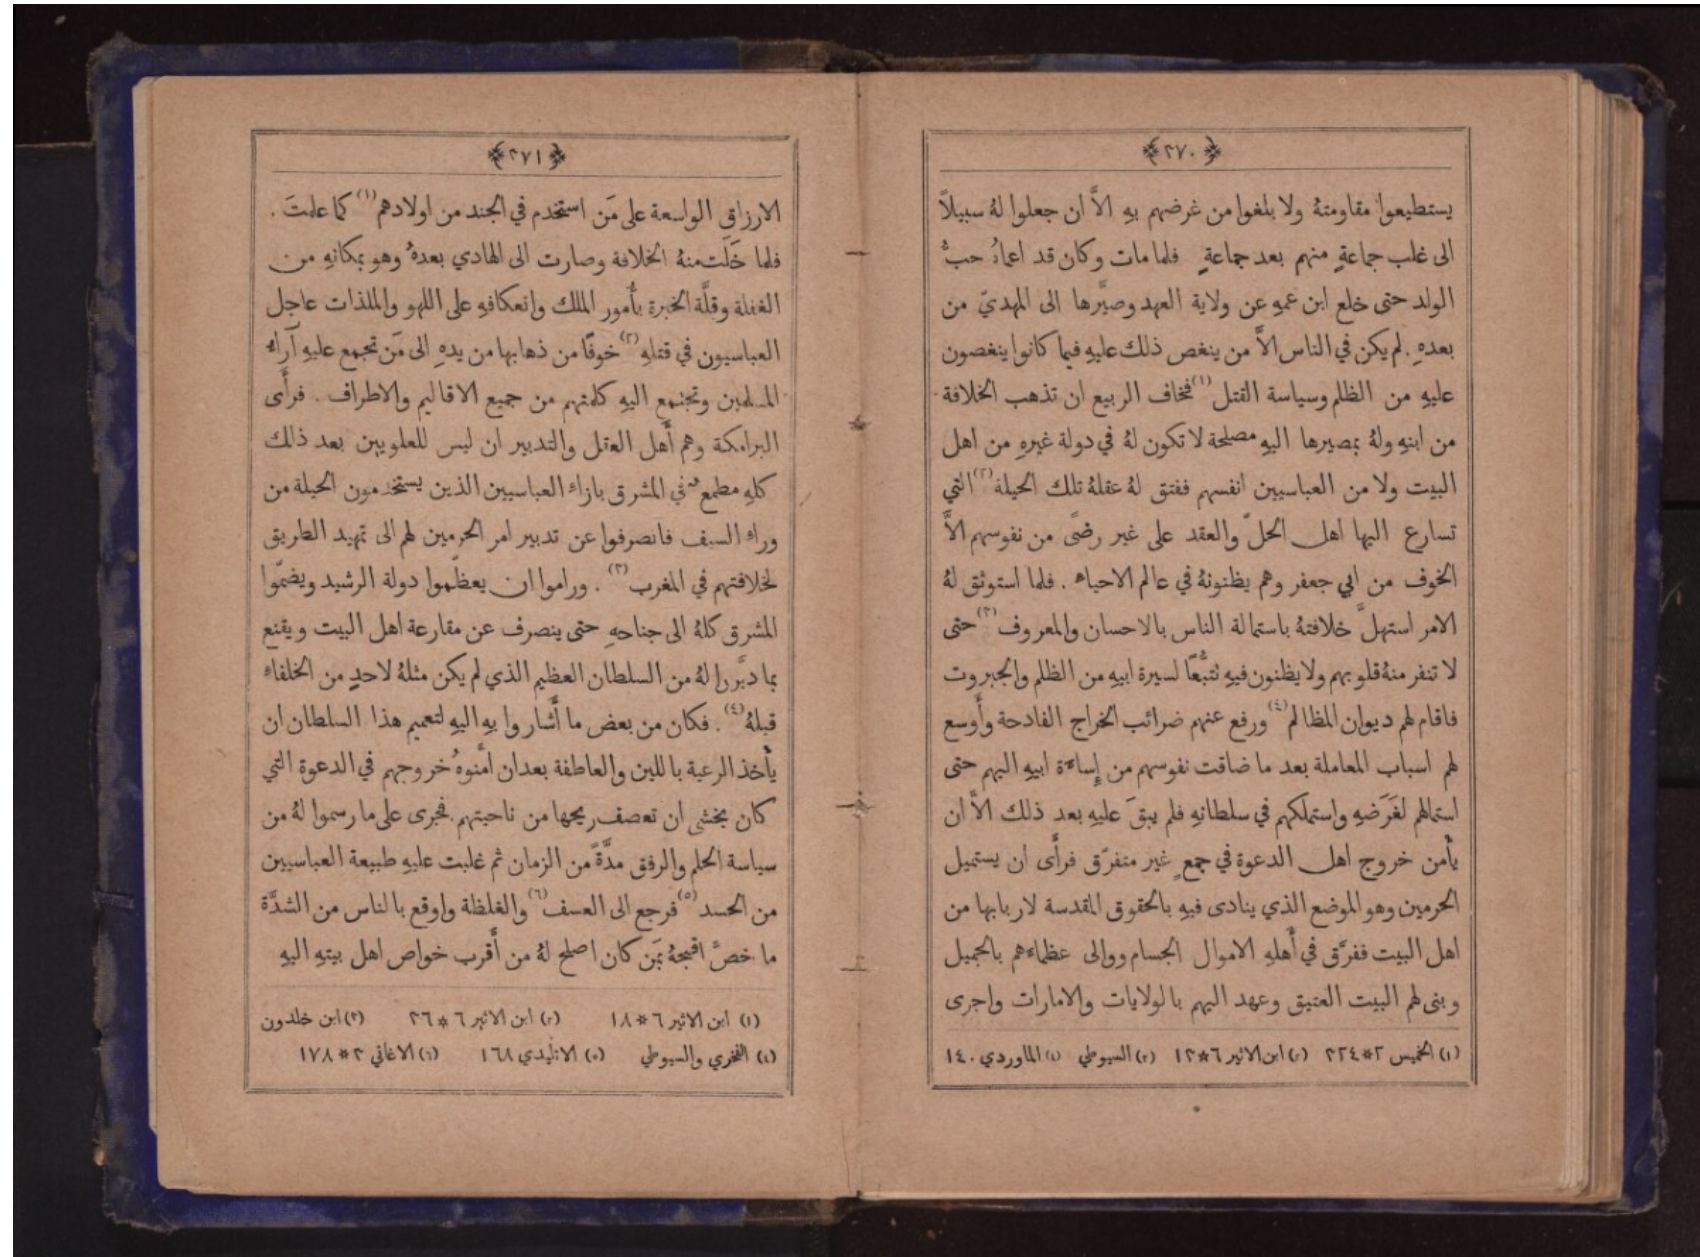 ﴿٢٧٠﴾
يستطيعوا مقاومتهُ ولا بلغوا من غرضهم بهِ الاَّ ان جعلوا لهُ سبيلاً
الى غلب جماعةٍ منهم بعد جماعةٍ فلما مات وكان قد اعماهُ حبُّ
الولد حتى خلع ابن عمهِ عن ولاية العهد وصيَّرها الى المهديّ من
بعدهِ . لم يكن في الناس الاَّ من ينغص ذلك عليهِ فيما كانوا ينغصون
عليهِ من الظلم وسياسة القتل (١) فخاف الربيع ان تذهب الخلافة
من ابنهِ ولهُ بمصيرها اليهِ مصلحة لا تكون لهُ في دولة غيرهِ من اهل
البيت ولا من العباسيين انفسهم ففتق لهُ عقلهُ تلك الحيلة (٢) التي
تسارع اليها اهل الحلّ والعقد على غير رضًى من نفوسهم الاَّ
الخوف من ابي جعفر وهم يظنونهُ في عالم الاحياء . فلما استوثق لهُ
الامر استهلَّ خلافتهُ باستمالة الناس بالاحسان والمعروف (٣) حتى
لا تنفر منهُ قلوبهم ولا يظنون فيهِ تتبُّعًا لسيرة ابيهِ من الظلم والجبروت
فاقام لهم ديوان المظالم (٤) ورفع عنهم ضرائب الخراج الفادحة وأَوسع
لهم اسباب المعاملة بعد ما ضاقت نفوسهم من إِساءَة ابيهِ اليهم حتى
استمالهم لغَرَضهِ واستملكهم في سلطانهِ فلم يبقَ عليهِ بعد ذلك الاَّ ان
يأْمن خروج اهل الدعوة في جمعٍ غير متفرّق فرأَى ان يستميل
الحرمين وهو الموضع الذي ينادى فيهِ بالحقوق المقدسة لاربابها من
اهل البيت ففرَّق في أَهلهِ الاموال الجسام ووالى عظماءَهم بالجميل
وبنى لهم البيت العتيق وعهد اليهم بالولايات والامارات واجرى
(١) الخميس ٢*٣٢٤ (٢) ابن الاثير ٦*١٣ (٣) السيوطي (٤) الماوردي ١٤٠
﴿٢٧١﴾
الارزاق الواسعة على مَن استخدم في الجند من اولادهم (١) كما علمتَ .
فلما خَلَت منهُ الخلافة وصارت الى الهادي بعدهُ وهو بمكانهِ من
الغفلة وقلَّة الخبرة بأُمور الملك وانعكافهِ على اللهو والملذات عاجل
العباسيون في قتلهِ (٢) خوفًا من ذهابها من يدهِ الى مَن تجمع عليهِ آراءُ
المسلمين وتجتمع اليهِ كلمتهم من جميع الاقاليم والاطراف . فرأَى
البرامكة وهم أَهل العقل والتدبير ان ليس للعلويين بعد ذلك
كلهِ مطمعٌ في المشرق بازاء العباسيين الذين يستخدمون الحيلة من
وراء السيف فانصرفوا عن تدبير امر الحرمين لهم الى تمهيد الطريق
لخلافتهم في المغرب (٣) . وراموا ان يعظّموا دولة الرشيد ويضمّوا
المشرق كلهُ الى جناحهِ حتى ينصرف عن مقارعة اهل البيت ويقنع
بما دبَّروا لهُ من السلطان العظيم الذي لم يكن مثلهُ لاحدٍ من الخلفاء
قبلهُ (٤) . فكان من بعض ما أَشاروا بهِ اليهِ لتعميم هذا السلطان ان
يأْخذ الرعية باللين والعاطفة بعد ان أَمَّنوهُ خروجهم في الدعوة التي
كان يخشى ان تعصف ريحها من ناحيتهم . فجرى على ما رسموا لهُ من
سياسة الحلم والرفق مدَّةً من الزمان ثم غلبت عليهِ طبيعة العباسيين
من الحسد (٥) فرجع الى العسف (٦) والغلظة واوقع بالناس من الشدَّة
ما خصَّ اقبحهُ بمَن كان اصلح لهُ من أَقرب خواص اهل بيتهِ اليهِ
(١) ابن الاثير ٦*١٨ (٢) ابن الاثير ٦*٣٦ (٣) ابن خلدون
(٤) الفخري والسيوطي (٥) الاتليدي ١٦٨ (٦) الاغاني ٣*١٧٨